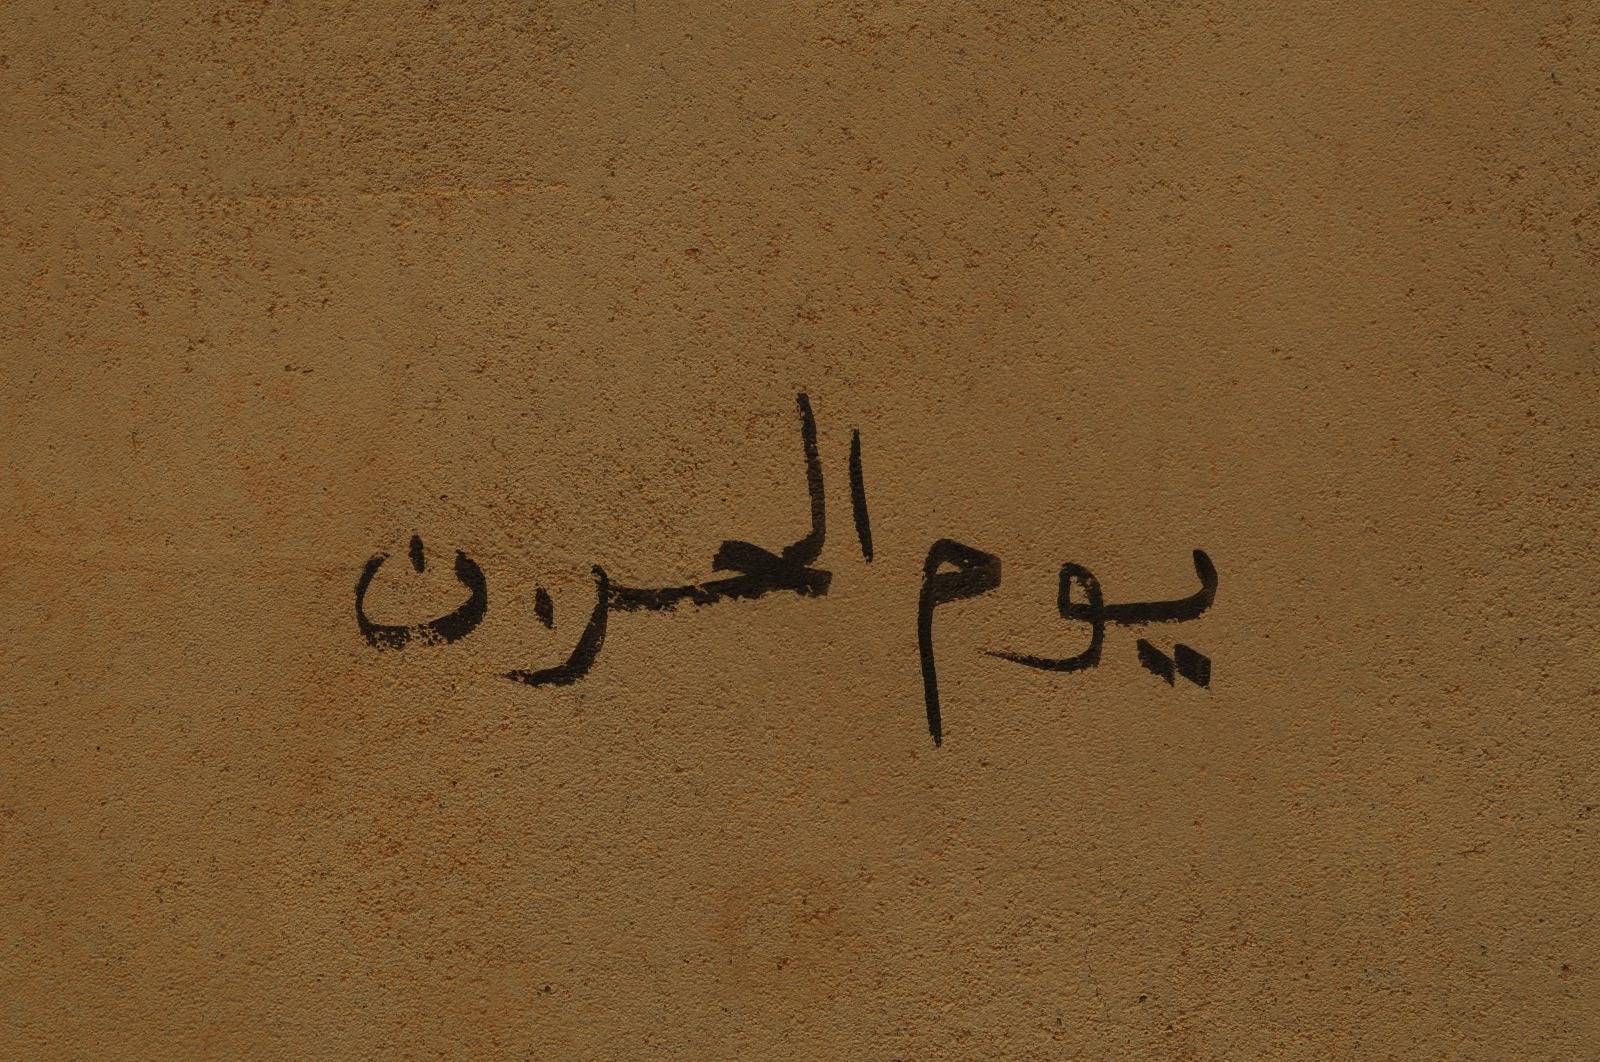 يوم الحزن